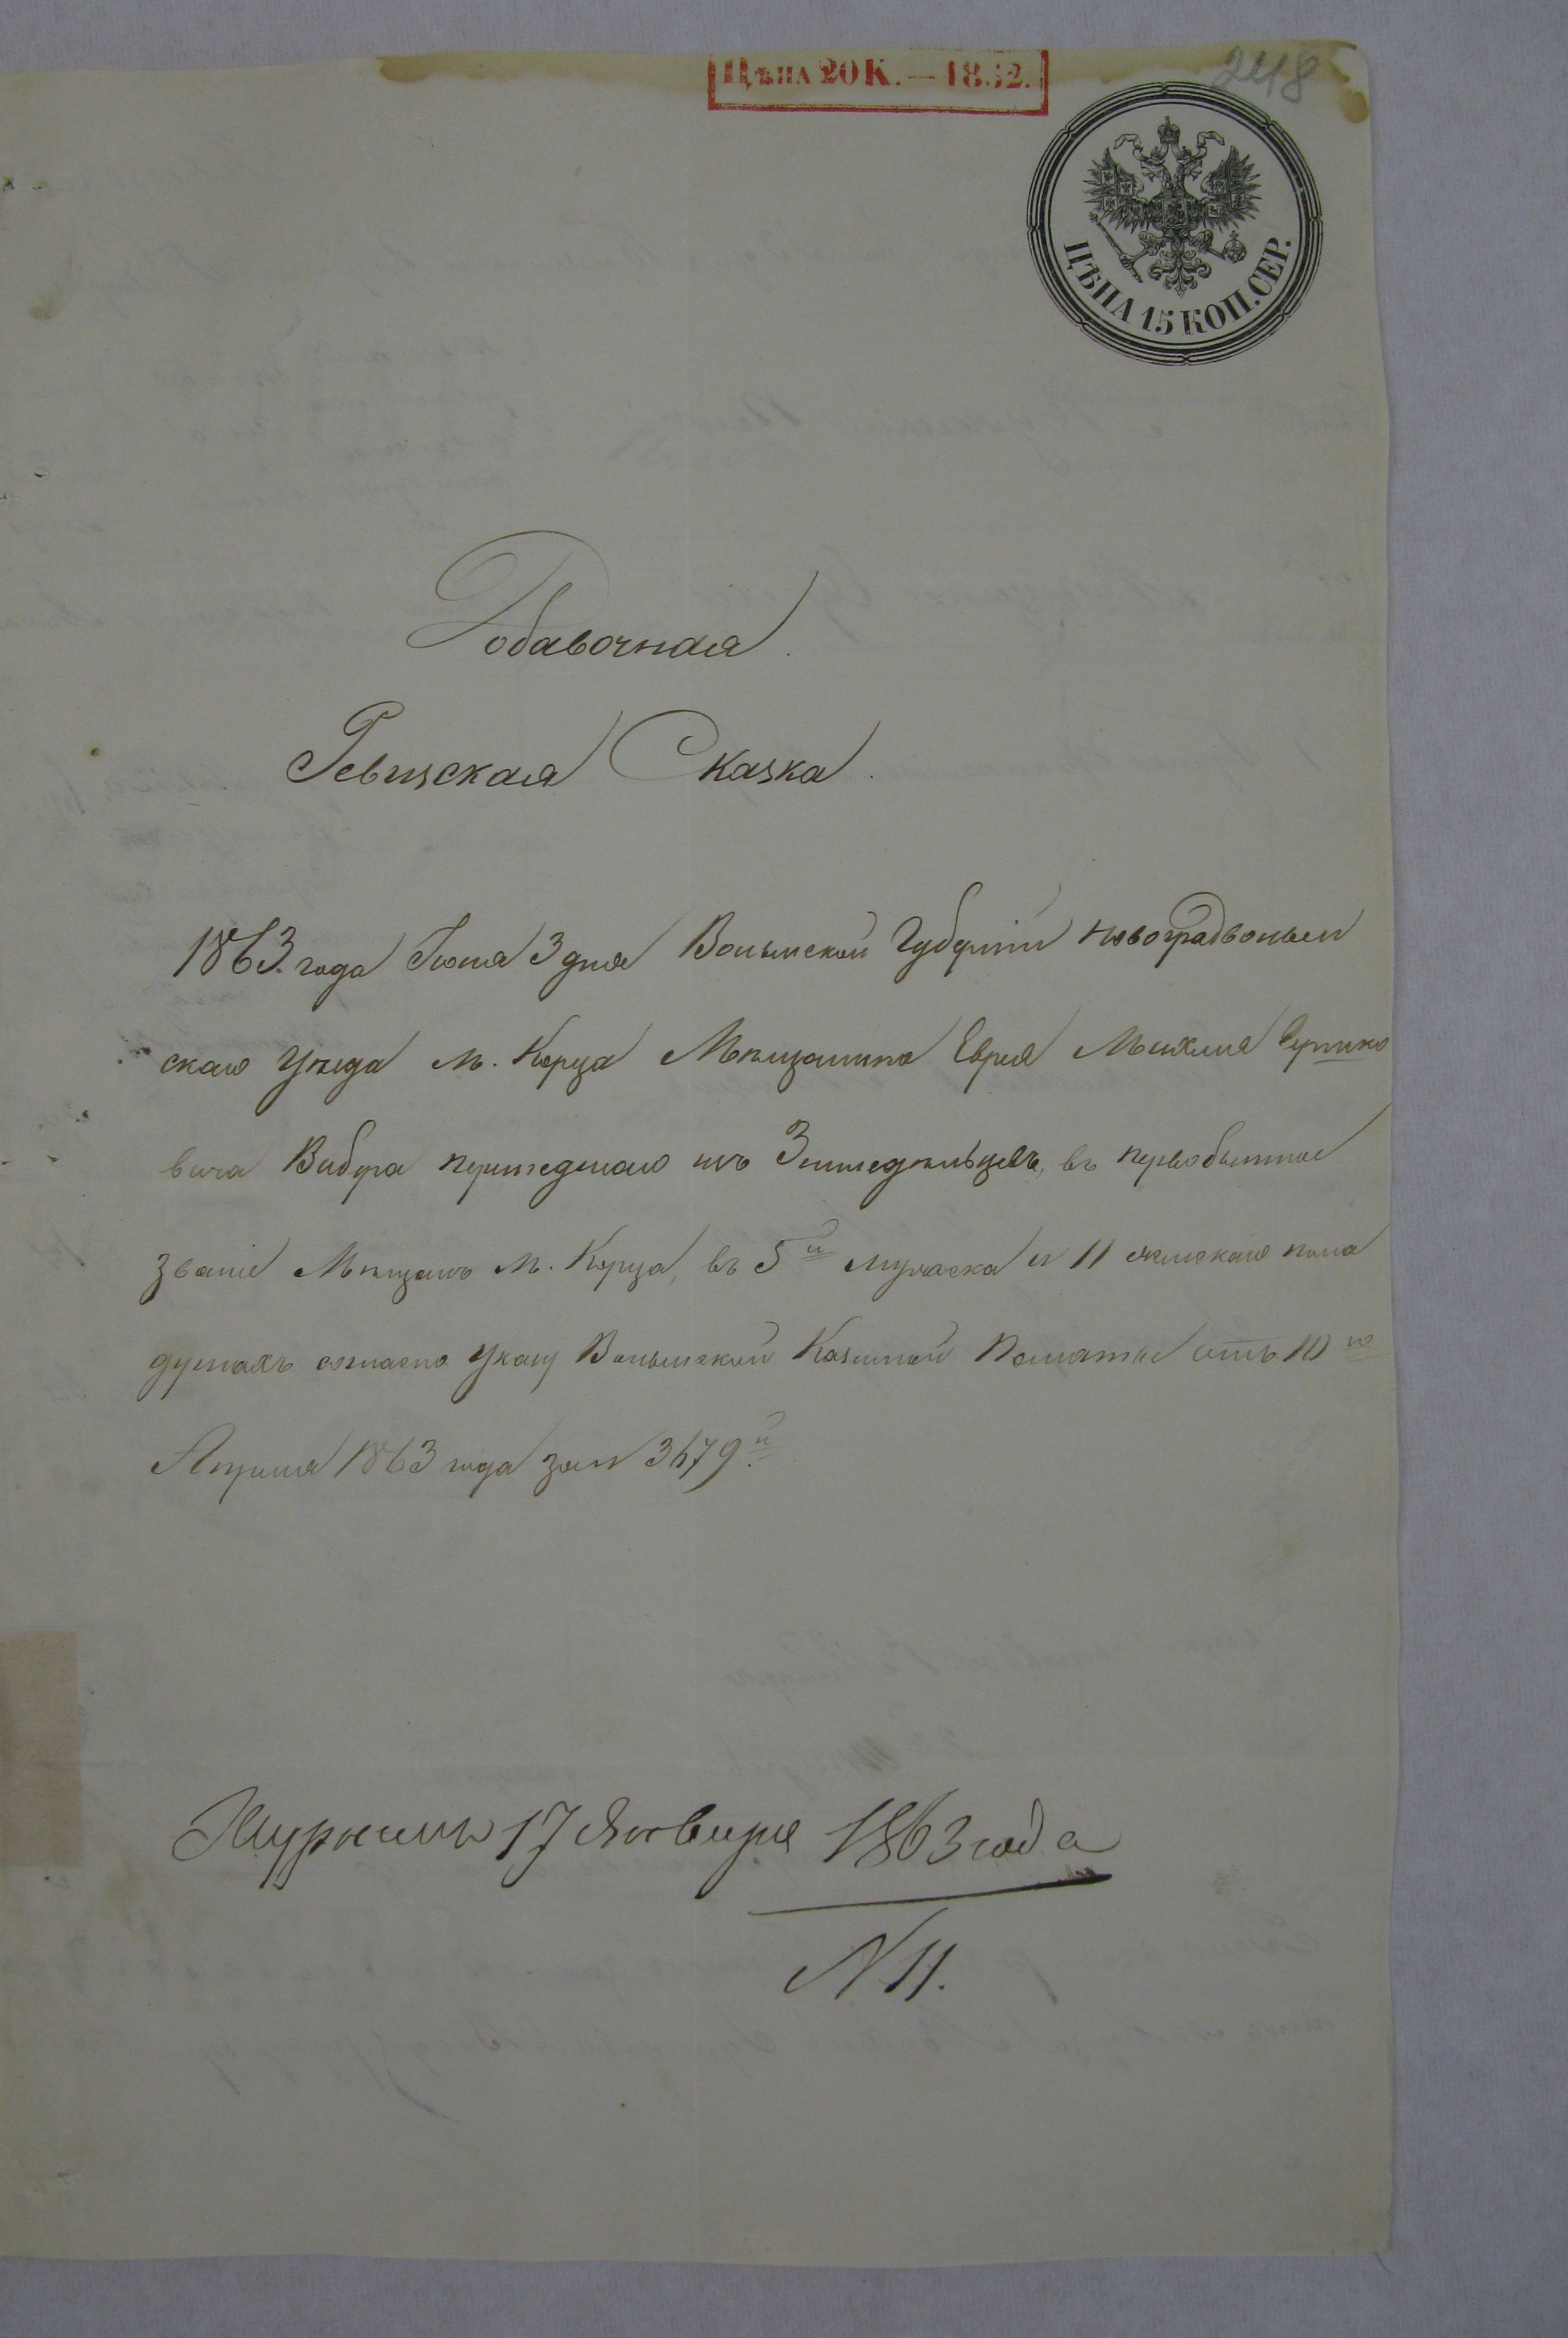 ЦѢНА 20 К. — 1862.
248
ЦѢНА 15 КОП. СЕР.
Добавочная
Ревизская Сказка
1863 года Іюня 3 дня Волынской Губерніи Новоградволын
скаго Уѣзда М. Корца Мѣщанина Еврея
вича перешедшаго изъ Земледѣльцевъ, въ первобытное
званіе Мѣщанъ М. Корца, въ 5й мужеска и 11 женскаго пола
душахъ согласно Указу Волынской Казенной Палаты отъ 10го
Апрѣля 1863 года за N 3679й
17 Января 1863 года
N 11.